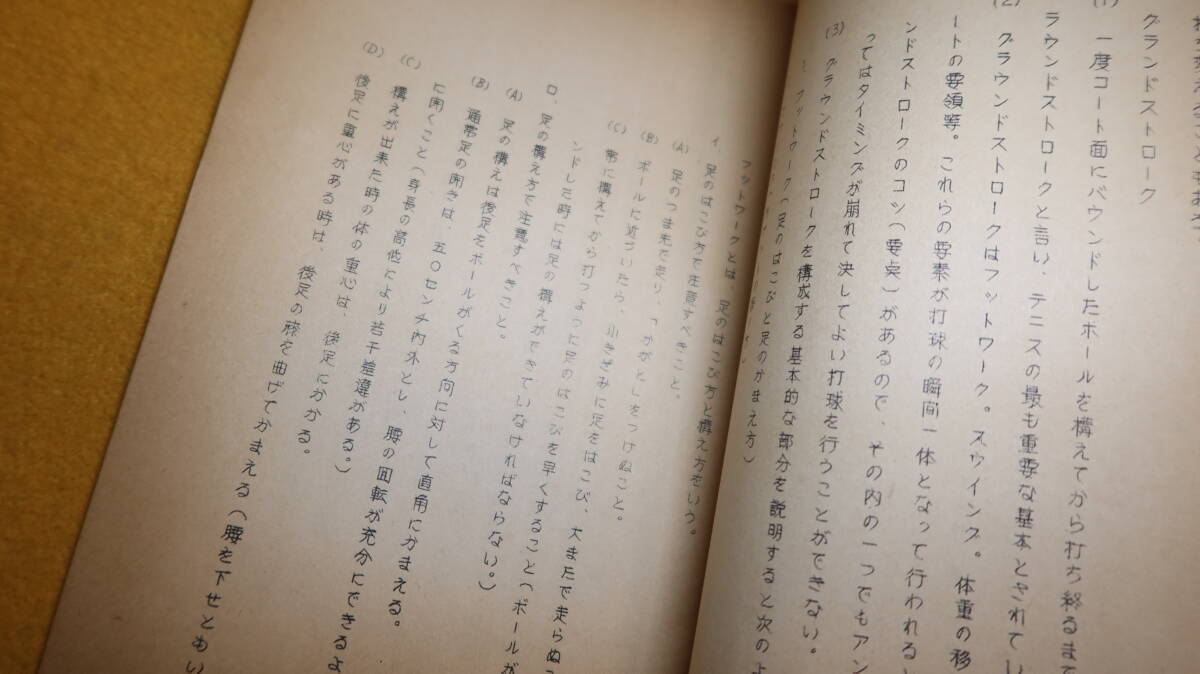 グランドストローク
(1) 一度コート面にバウンドしたボールを構えてから打ち終るまで
ラウンドストロークと言い、テニスの最も重要な基本とされてい
(2) グラウンドストロークはフットワーク。スウイング。体重の移
ートの要領等。これらの要素が打球の瞬間一体となって行われる
ンドストロークのコツ(要点)があるので、その内の一つでもアン
ってはタイミングが崩れて決してよい打球を行うことができない。
(3) グラウンドストロークを構成する基本的な部分を説明すると次のよ
フットワーク(足のはこびと足のかまえ方)
フットワークとは、足のはこび方と構え方をいう。
イ、足のはこび方で注意すべきこと。
(A) 足のつま先で走り、「かがと」をつけぬこと。
(B) ボールに近づいたら、小きざみに足をはこび、大またで走らぬこ
(C) 常に構えてから打つように足のはこびを早くすること(ボールが
ンドした時には足の構えができていなければならない。)
ロ、足の構え方で注意すべきこと。
(A) 足の構えは後足をボールがくる方向に対して直角にかまえる。
(B) 通常足の開きは、五〇センチ内外とし、腰の回転が充分にできるよ
に開くこと(身長の高低により若干差違がある。)
(C) 構えが出来た時の体の重心は、後足にかかる。
(D) 後足に重心がある時は、後足の膝を曲げてかまえる(腰を下せともい